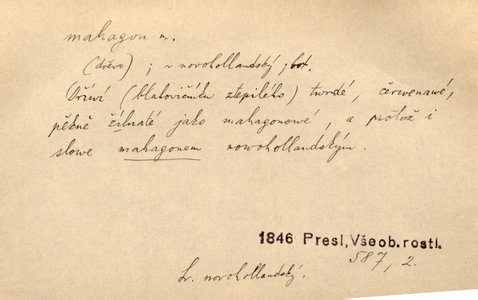 mahagon m.
(dřevo) ; ~ novohollandský ; bot.
Dříwí (blahovičníku ztepilého) twrdé, čerwenawé,
pěkně žíhaté jako mahagonowé, a protož i
slowe mahagonem nowohollandským.
1846 Presl, Všeob. rostl.
587, 2.
Sr. novohollandský.